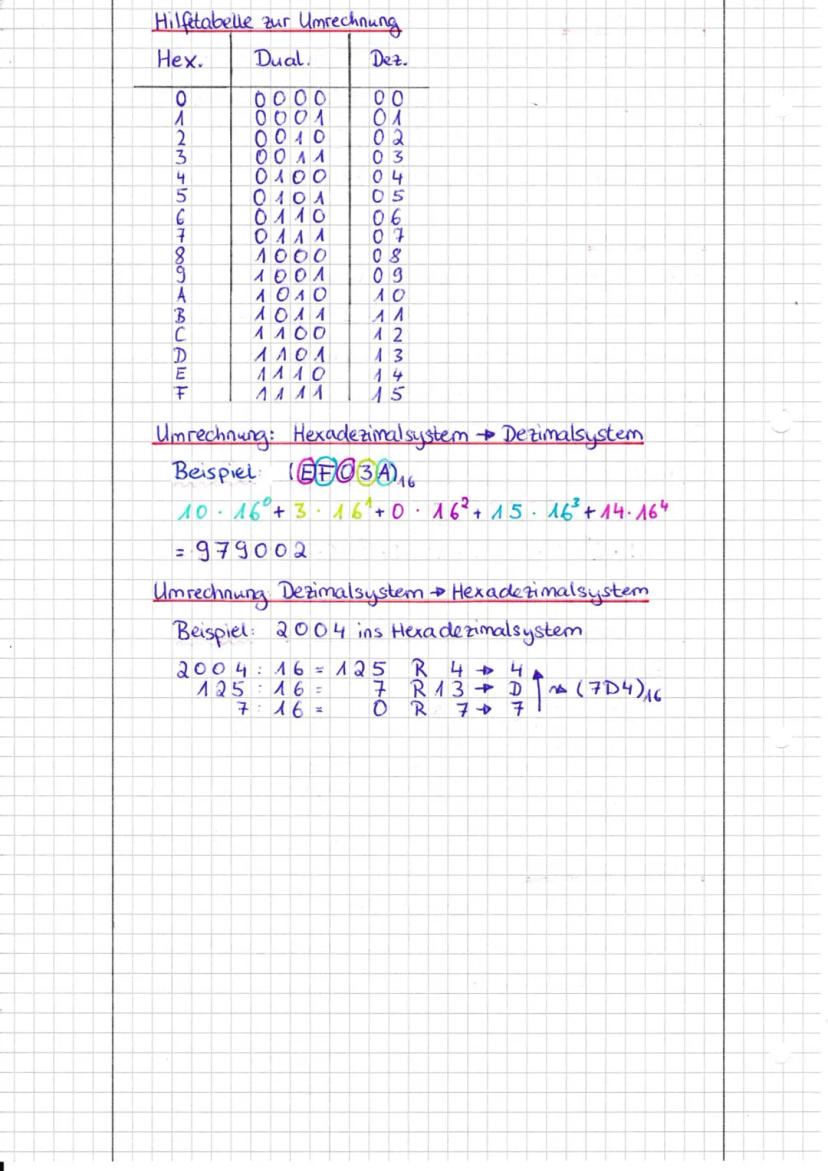 Hilfstabelle zur Umrechnung
Hex. Dual. Dez.
0 0000 00
1 0001 01
2 0010 02
3 0011 03
4 0100 04
5 0101 05
6 0110 06
7 0111 07
8 1000 08
9 1001 09
A 1010 10
B 1011 11
C 1100 12
D 1101 13
E 1110 14
F 1111 15
Umrechnung: Hexadezimalsystem → Dezimalsystem
Beispiel: (EF03A)₁₆
10 · 16⁰ + 3 · 16¹ + 0 · 16² + 15 · 16³ + 14 · 16⁴
= 979002
Umrechnung Dezimalsystem → Hexadezimalsystem
Beispiel: 2004 ins Hexadezimalsystem
2004 : 16 = 125 R 4 → 4
125 : 16 = 7 R 13 → D ↑ ⇝ (7D4)₁₆
7 : 16 = 0 R 7 → 7